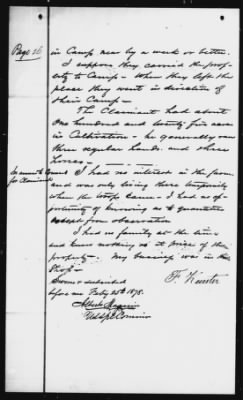 Page 16
in Camp near by a week or better.
I suppose they carried the prop-
erty to Camp - When they left the
place they went in direction of
their Camp -
The Claimant had about
One hundred and twenty five acres
in Cultivation - he generally ran
three regular hands and share
horses -
In answer to
for Claimant
I had no interest in the farm
and was only living there temporarily
when the troops came - I had no op-
portunity of knowing as to quantities
except from observation
I had no family at the time
and knew nothing as to price of this
property. My business was in the
Shop -
Sworn & subscribed
before me Feby 25th 1878.
F.
Albert